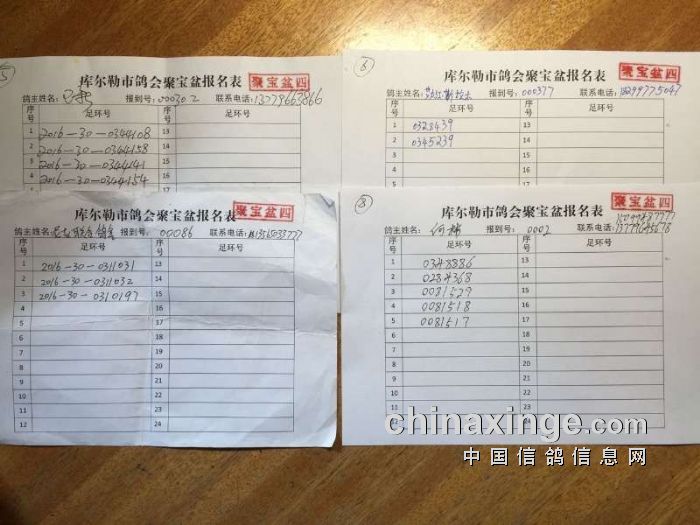 5
库尔勒市鸽会聚宝盆报名表 聚宝盆四
鸽主姓名: 报到号:000302 联系电话:13779663866
序号 足环号 序号 足环号
1 2016-30-0344108 13
2 2016-30-0344158 14
3 2016-30-0344141 15
4 2016-30-0344154 16
6
库尔勒市鸽会聚宝盆报名表 聚宝盆四
鸽主姓名: 报到号:000377 联系电话:13299775047
序号 足环号 序号 足环号
1 0328439 13
2 0345239 14
3 15
4 16
5 17
库尔勒市鸽会聚宝盆报名表 聚宝盆四
鸽主姓名: 报到号:00086 联系电话:13565033777
序号 足环号 序号 足环号
1 2016-30-0311031 13
2 2016-30-0311032 14
3 2016-30-0310197 15
4 16
5 17
6 18
7 19
8 20
9 21
10 22
11 23
12 24
8
库尔勒市鸽会聚宝盆报名表 聚宝盆四
鸽主姓名: 何 报到号:0002 联系电话:13779645678
序号 足环号 序号 足环号
1 0348886 13
2 0284368 14
3 0081529 15
4 0081518 16
5 0081517 17
6 18
7 19
8 20
9 21
10 22
11 23
12 24
chinaxinge.com
中国信鸽信息网